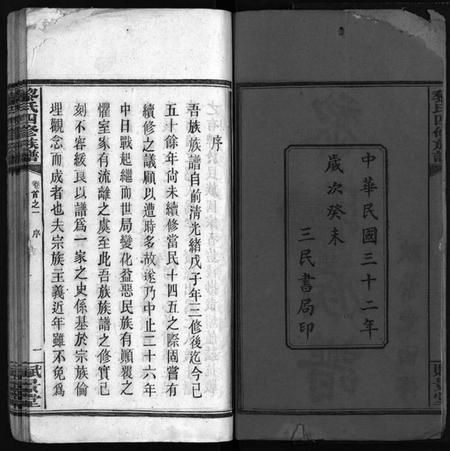 中華民國三十二年
歲次癸未
三民書局印
黎氏四修族譜
序
吾族族譜自前清光緒戊子年三修後迄今已
五十餘年尚未續修當民十四五之際固嘗有
續修之議顧以遭時多故遂乃中止二十六年
中日戰起繼而世局變化益惡民族有顛覆之
懼室家有流離之虞至此吾族族譜之修實已
刻不容緩良以譜爲一家之史係基於宗族倫
理觀念而成者也夫宗族主義近年雖不免爲
黎氏四修族譜
卷首之一
序
一